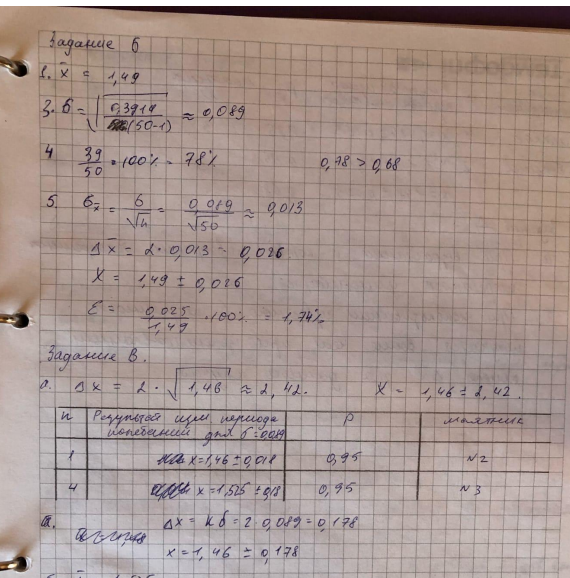 Задание б
1. x̄ = 1,49
3. б = √(0,3919 / (50-1)) ≈ 0,089
4 39/50 · 100% = 78% 0,78 > 0,68
5. бx̄ = б/√n = 0,089/√50 ≈ 0,013
Δx̄ = 2 · 0,013 = 0,026
X = 1,49 ± 0,026
ε = 0,025/1,49 · 100% = 1,74%
Задание В.
а. Δx = 2 · √1,46 ≈ 2,42. X = 1,46 ± 2,42.
n Результат изм периода P маятник
колебаний для б=0,089
1 x=1,46 ± 0,018 0,95 №2
4 x=1,525 ± 0,18 0,95 №3
Δx = кб = 2·0,089=0,178
x=1,46 ± 0,178